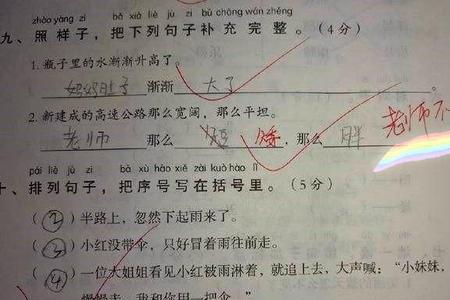 zhào yàng zi bǎ xià liè jù zi bǔ chōng wán zhěng
九、照样子，把下列句子补充完整。（4分）
1. 瓶子里的水渐渐升高了。
妈妈肚子 渐渐 大了
2. 新建成的高速公路那么宽阔，那么平坦。
老师 那么 矮，那么 胖 老师不
pái liè jù zi bǎ xù hào xiě zài kuò hào lǐ
十、排列句子，把序号写在括号里。（5分）
（2）半路上，忽然下起雨来了。
（3）小红没带伞，只好冒着雨往前走。
（4）一位大姐姐看见小红被雨淋着，就追上去，大声喊：“小妹妹，
慢慢走，我和你用一把伞。”